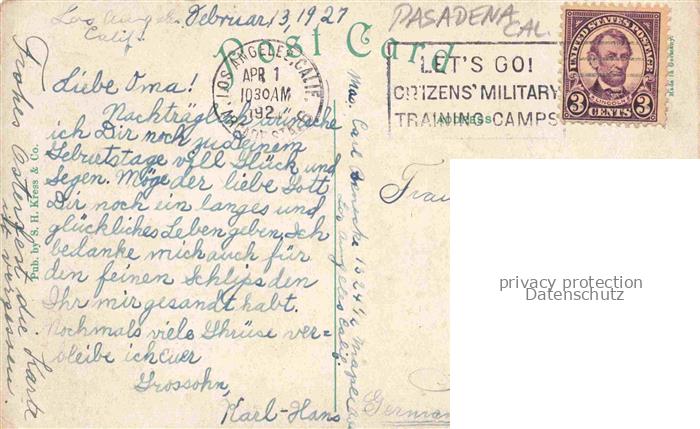 Los Angeles
Calif.
Februar 13, 1927
PASADENA
CAL.
Post Card
LOS ANGELES, CALIF.
APR 1
1030 AM
192
LET'S GO!
CITIZENS' MILITARY
TRAINING CAMPS
UNITED STATES POSTAGE
LINCOLN
3 CENTS 3
Made in Germany
Address
Liebe Oma!
Nachträglich wünsche
ich Dir noch zu deinem
Geburtstage viel Glück und
Segen. Möge der liebe Gott
Dir noch ein langes und
glückliches Leben geben. Ich
bedanke mich auch für
den feinen Schlips den
Ihr mir gesandt habt.
Nochmals viele Grüse ver=
bleibe ich Euer
Grossohn,
Karl-Hans
Frohes Osterfest die Karte
ist vergessen.
Pub. by S. H. Kress & Co.
Carl
Los Angeles Calif.
Frau
Germany
privacy protection
Datenschutz